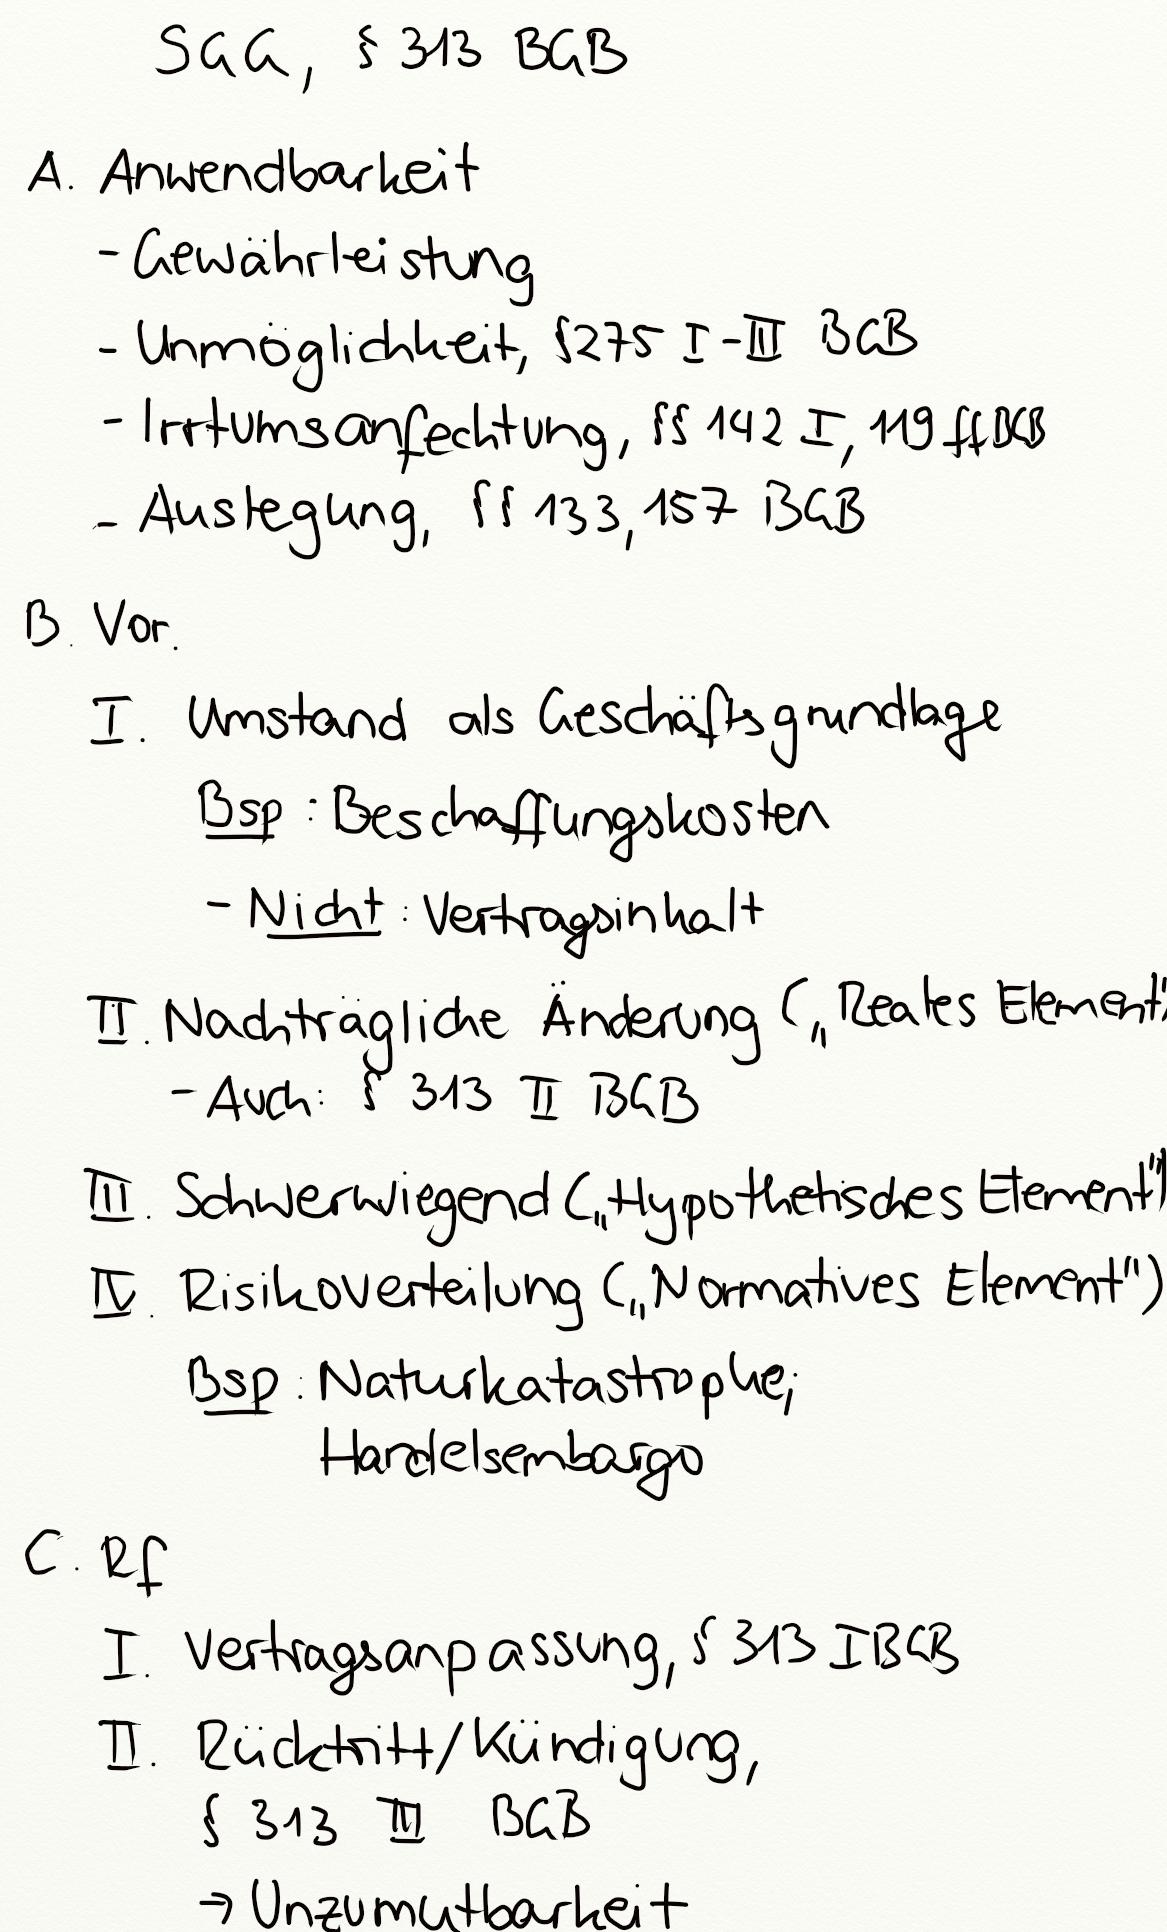 SGG, § 313 BGB
A. Anwendbarkeit
- Gewährleistung
- Unmöglichkeit, §275 I-III BGB
- Irrtumsanfechtung, §§ 142 I, 119 ff BGB
- Auslegung, §§ 133, 157 BGB
B. Vor.
I. Umstand als Geschäftsgrundlage
Bsp : Beschaffungskosten
- Nicht : Vertragsinhalt
II. Nachträgliche Änderung („Reales Element"
- Auch: § 313 II BGB
III. Schwerwiegend („Hypothetisches Element")
IV. Risikoverteilung („Normatives Element")
Bsp : Naturkatastrophe;
Handelsembargo
C. Rf
I. Vertragsanpassung, § 313 I BGB
II. Rücktritt/Kündigung,
§ 313 III BGB
→ Unzumutbarkeit